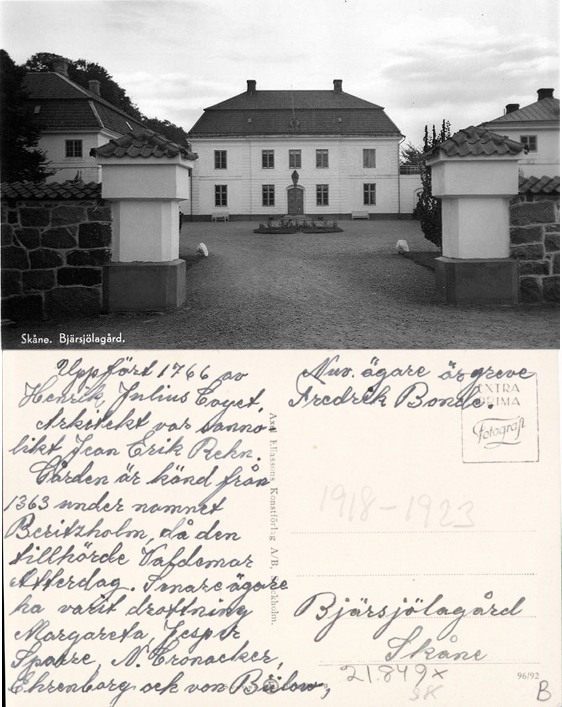 Skåne. Bjärsjölagård.
Uppfört 1766 av
Henrik, Julius Coyet,
Arkitekt var sanno
likt Jean Erik Rehn.
Gården är känd från
1363 under namnet
Beritzholm, då den
tillhörde Valdemar
Atterdag. Senare ägare
ha varit drottning
Margareta, Jesper
Sparre, N. Cronacker,
Ehrenborg och von Bülow,
Nuv. ägare är greve
Fredrik Bonde.
EXTRA
PRIMA
Fotografi
Axel Eliassons Konstförlag A/B, Stockholm.
1918-1923
Bjärsjölagård
Skåne
21.849x
SK
96/92
B